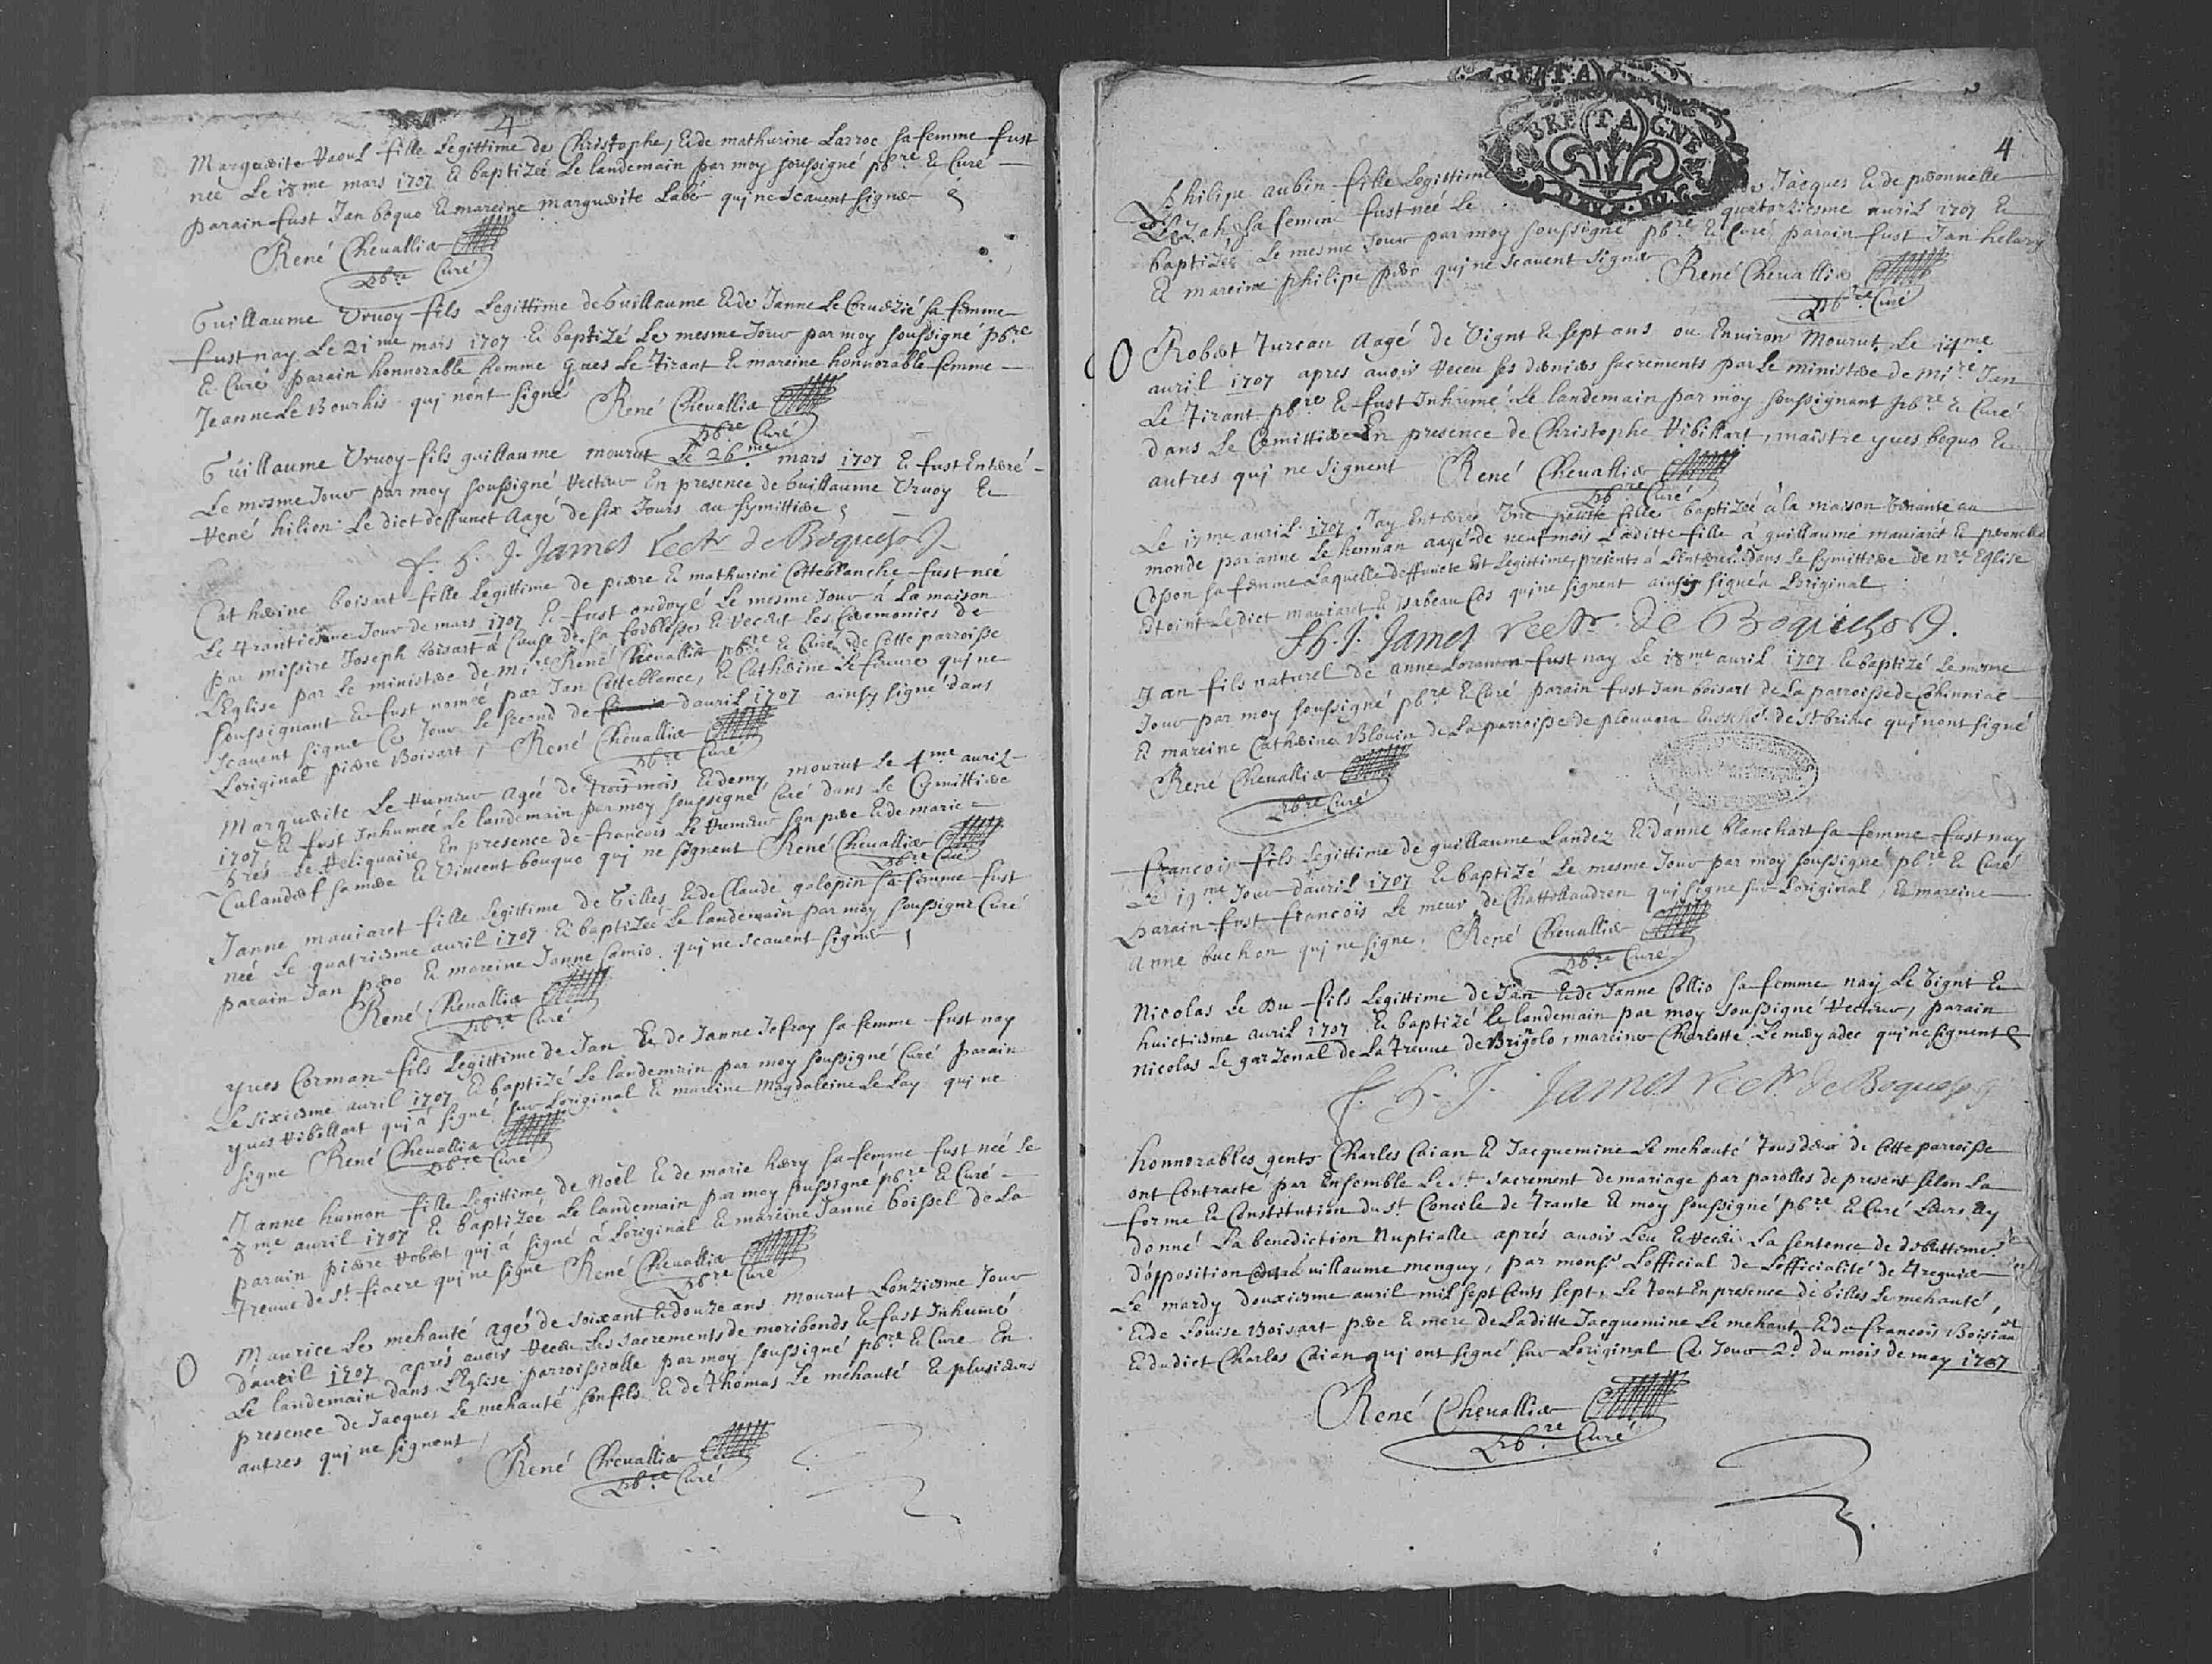 4
Marguerite Raoul fille Legittime de Christophe, & de mathurine Larroc sa femme fust
neé Le 18me mars 1707 & baptizeé Le landemain par moy soussigné pbre & Curé
parain fust Jan boquo & mareine marguerite Labé qui ne scauent signer
René Cheuallier
pbre Curé
Guillaume Vruoy fils Legittime de Guillaume & de Janne Le Cruezié sa femme
fust nay Le 21me mars 1707 & baptizé Le mesme Jour par moy soussigné pbre
& Curé parain honnorable homme yues Le Tirant & mareine honnorable femme
Jeanne Le Bourhis qui n'ont signé René Cheuallier
pbre Curé
Guillaume Vruoy fils guillaume mourut Le 26me mars 1707 & fust Enterré
Le mesme Jour par moy soussigné Recteur En presence de Guillaume Vruoy &
René hilion Le dict deffunct Aagé de six Jours au symittiere
f. h. J. James rectr de Boqueho
Catherine boisart fille Legittime de pierre & mathurine Cotteblanche fust neé
Le Trantiesme Jour de mars 1707 & fust ondoyé Le mesme Jour á La maison
par missire Joseph boisart á Cause de sa foiblesse & receut Les Ceremonies de
L'Eglise par Le ministere de mire René Cheuallier pbre & Curé de Cette parroisse
soussignant & fust nomeé par Jan Cotteblance, & Catherine Le feuure qui ne
scauent signer Ce Jour Le second de d'auril 1707 ainsy signé dans
L'original pierre Boisart, René Cheuallier
pbre Curé
Marguerite Le Rumeur Ageé de Trois mois & demy mourut Le 4me auril
1707 & fust Inhumeé Le landemain par moy soussigné Curé dans Le Cymittiere
prés Le Reliquaire En presence de francois Le Rumeur son pere & de marie
Calandef sa mere & Vincent bouquo qui ne signent René Cheuallier
pbre Curé
Janne mauiaret fille Legittime de Gilles & de Claude galopin sa femme fust
neé Le quatriesme auril 1707 & baptizeé Le landemain par moy soussigné Curé
parain Jan pero & mareine Janne Camio qui ne scauent signer
René Cheuallier
pbre Curé
yues Corman fils Legittime de Jan & de Janne Jefray sa femme fust nay
Le sixiesme auril 1707 & baptizé Le landemain par moy soussigné Curé parain
yues Ribillart qui á signé sur L'original & mareine Magdaleine Le Fay qui ne
signe René Cheuallier
pbre Curé
Janne humon fille Legittime de Noël & de marie hery sa femme fust neé Le
8me auril 1707 & baptizeé Le landemain par moy soussigné pbre & Curé
parain pierre Robert qui á signé á L'original & mareine Janne boissel de La
Treuue de st fiacre qui ne signe René Cheuallier
pbre Curé
Maurice Le mehauté agé de soixant & douze ans mourut L'onziesme Jour
d'auril 1707 aprés auoir Receu Les sacrements de moribonds & fust Inhumé
Le landemain dans L'Eglise parroissialle par moy soussigné pbre & Curé En
presence de Jacques Le mehauté son fils & de Thomas Le mehauté & plusieurs
autres qui ne signent
René Cheuallier
pbre Curé
BRETAGNE
4
Philipe aubin fille Legittime Jacques & de peronnelle
sa femme fust neé Le quatorziesme auril 1707 &
baptizeé Le mesme Jour par moy soussigné pbre & Curé parain fust Jan helary
& mareine philipe pier qui ne scauent signer René Cheuallier
pbre Curé
Robert Jurcan Aagé de Vignt & sept ans ou Enuiron Mourut Le 14me
auril 1707 apres auoir Receu ses derniers sacrements par Le ministere de mire Jan
Le Tirant pbre & fust Inhumé Le landemain par moy soussignant pbre & Curé
dans Le Cemittiere En presence de Christophe Ribillart, maistre yues boquo &
autres qui ne signent René Cheuallier
pbre Curé
Le 17me auril 1707 Jay Enterré Vne petite fille baptizeé á la maison Venante au
monde par anne Le hennan aagé de neuf mois Laditte fille á guillaume mauiaret & peronelle
Cosson sa femme Laquelle deffuncte Est Legittime presents á L'interré dans Le symittiere de nre Eglise
Le dict mauiaret & Isabeau Cos qui ne signent ainsy signé á L'original
f. h. J. James rectr de Boqueho
Jan fils naturel de anne fust nay Le 18me auril 1707 & baptizé Le mesme
Jour par moy soussigné pbre & Curé parain fust Jan boisart de La parroisse de Cohinniac
& mareine Catherine Blouin de La parroisse de plouuara Euesché de st brieuc qui n'ont signé
René Cheuallier
pbre Curé
francois fils Legittime de guillaume Landez & d'anne blanchart sa femme fust nay
Le 19me Jour d'auril 1707 & baptizé Le mesme Jour par moy soussigné pbre & Curé
parain fust francois Le meur de Chattelaudren qui signe sur L'original, & mareine
anne buchon qui ne signe. René Cheuallier
pbre Curé
Nicolas Le Du fils Legittime de Jan & de Janne Collio sa femme nay Le Vignt &
huictiesme auril 1707 & baptizé Le landemain par moy soussigné Recteur, parain
Nicolas Le garzonal de La Treuue de Brigolo, mareine Charlotte Le meryadec qui ne signent
f. h. J. James rectr de Boqueho
honnorables gents Charles Caian & Jacquemine Le mehauté Tous deux de Cette parroisse
ont Contracté par Ensemble Le st sacrement de mariage par parolles de present selon La
forme & Constitution du st Concile de Trante & moy soussigné pbre & Curé Leurs ay
donné La benediction Nuptialle aprés auoir Leu & Receü La sentence de
d'opposition Guillaume menguy, par monsr L'official de L'officialité de Treguier
Le mardy douxiesme auril mil sept Cents sept, Le Tout En presence de Gilles Le mehauté,
& de Louise Boisart pere & mere de Laditte Jacquemine Le mehauté & de francois Boisart
& dudict Charles Caian qui ont signé sur L'original Ce Jour 2d du mois de may 1707
René Cheuallier
pbre Curé